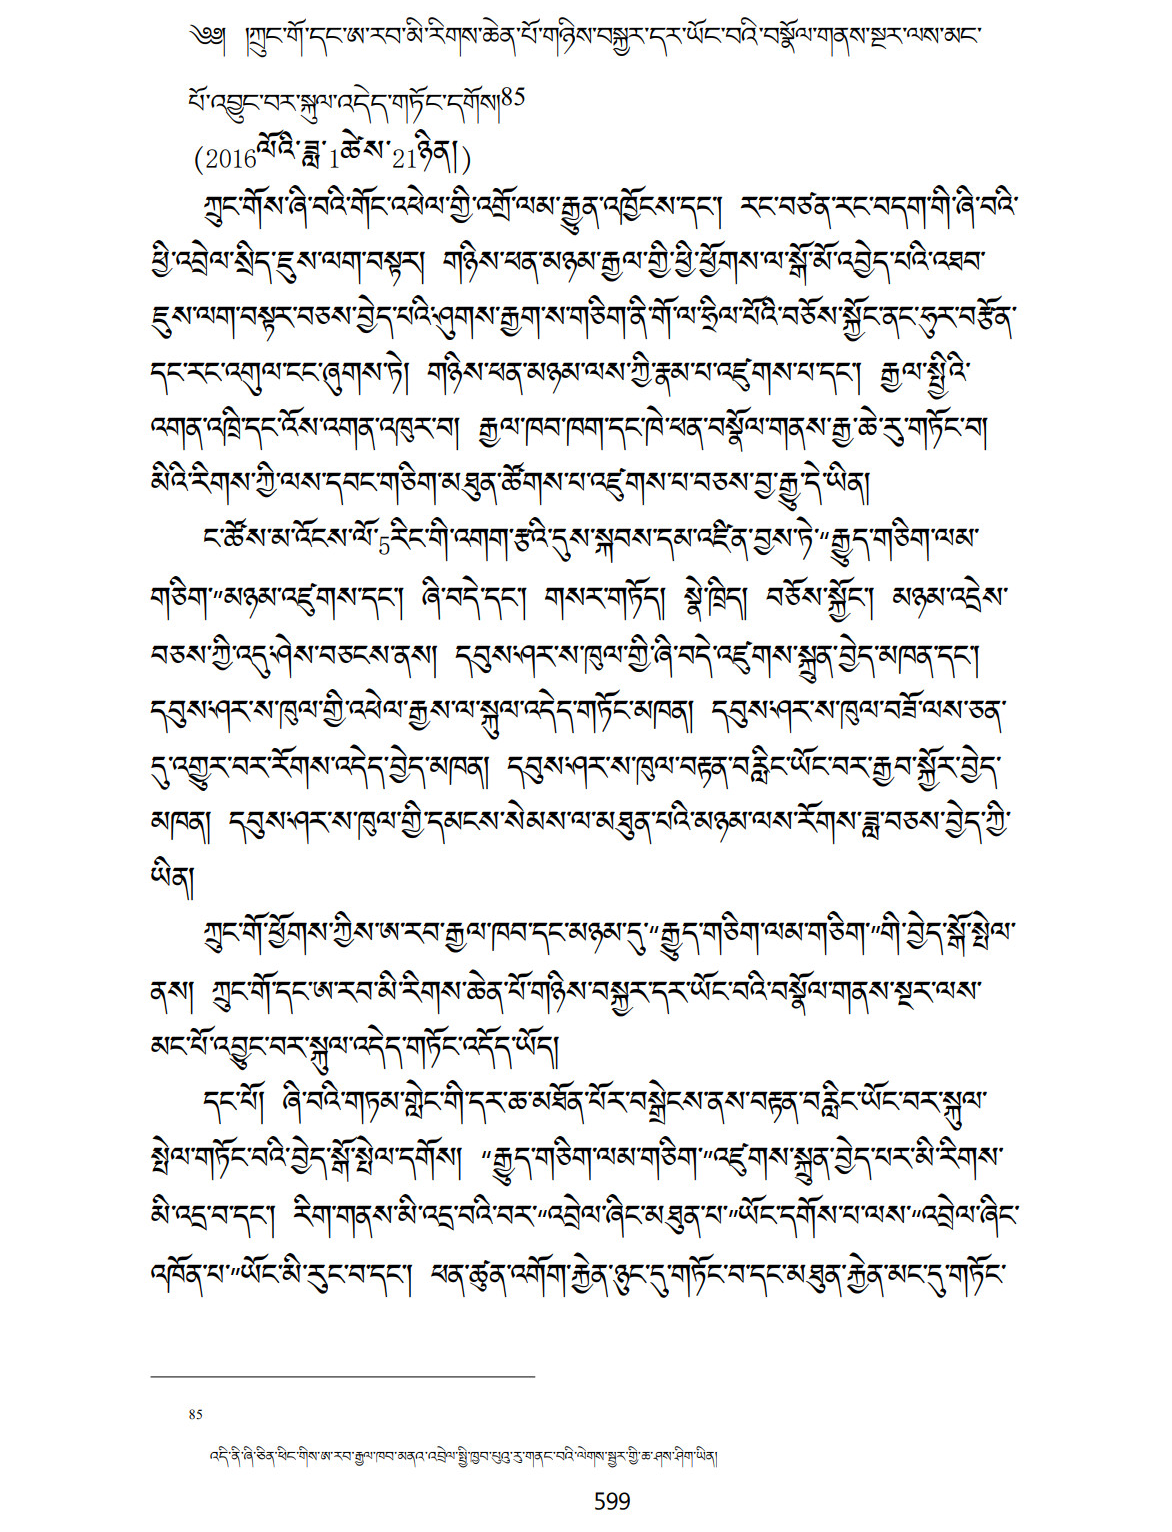 ༄༅། །ཀྲུང་གོ་དང་ཨ་རབ་མི་རིགས་ཆེན་པོ་གཉིས་བསྐྱར་དར་ཡོང་བའི་བསྣོལ་གནས་སྔར་ལས་མང་
པོ་འབྱུང་བར་སྐུལ་འདེད་གཏོང་དགོས།85
(2016ལོའི་ཟླ་1ཚེས་21ཉིན།)
ཀྲུང་གོས་ཞི་བའི་གོང་འཕེལ་གྱི་འགྲོ་ལམ་རྒྱུན་འཁྱོངས་དང་། རང་བཙན་རང་བདག་གི་ཞི་བའི་
ཕྱི་འབྲེལ་སྲིད་ཇུས་ལག་བསྟར། གཉིས་ཕན་མཉམ་རྒྱལ་གྱི་ཕྱི་ཕྱོགས་ལ་སྒོ་མོ་འབྱེད་པའི་འཐབ་
ཇུས་ལག་བསྟར་བཅས་བྱེད་པའི་ཤུགས་རྒྱག་ས་གཅིག་ནི་གོ་ལ་ཧྲིལ་པོའི་བཅོས་སྐྱོང་ནང་ཧུར་བརྩོན་
དང་རང་འགུལ་ངང་ཞུགས་ཏེ། གཉིས་ཕན་མཉམ་ལས་ཀྱི་རྣམ་པ་འཛུགས་པ་དང་། རྒྱལ་སྤྱིའི་
འགན་འཁྲི་དང་འོས་འགན་འཁུར་བ། རྒྱལ་ཁབ་ཁག་དང་ཁེ་ཕན་བསྣོལ་གནས་རྒྱ་ཆེ་རུ་གཏོང་བ།
མིའི་རིགས་ཀྱི་ལས་དབང་གཅིག་མཐུན་ཚོགས་པ་འཛུགས་པ་བཅས་བྱ་རྒྱུ་དེ་ཡིན།
ང་ཚོས་མ་འོངས་ལོ་5རིང་གི་འགག་རྩའི་དུས་སྐབས་དམ་འཛིན་བྱས་ཏེ་“རྒྱུད་གཅིག་ལམ་
གཅིག་”མཉམ་འཛུགས་དང་། ཞི་བདེ་དང་། གསར་གཏོད། སྣེ་ཁྲིད། བཅོས་སྐྱོང་། མཉམ་འདྲེས་
བཅས་ཀྱི་འདུ་ཤེས་བཅངས་ནས། དབུས་ཤར་ས་ཁུལ་གྱི་ཞི་བདེ་འཛུགས་སྐྲུན་བྱེད་མཁན་དང་།
དབུས་ཤར་ས་ཁུལ་གྱི་འཕེལ་རྒྱས་ལ་སྐུལ་འདེད་གཏོང་མཁན། དབུས་ཤར་ས་ཁུལ་བཟོ་ལས་ཅན་
དུ་འགྱུར་བར་རོགས་འདེད་བྱེད་མཁན། དབུས་ཤར་ས་ཁུལ་བརྟན་བརླིང་ཡོང་བར་རྒྱབ་སྐྱོར་བྱེད་
མཁན། དབུས་ཤར་ས་ཁུལ་གྱི་དམངས་སེམས་ལ་མཐུན་པའི་མཉམ་ལས་རོགས་ཟླ་བཅས་བྱེད་ཀྱི་
ཡིན།
ཀྲུང་གོ་ཕྱོགས་ཀྱིས་ཨ་རབ་རྒྱལ་ཁབ་དང་མཉམ་དུ་“རྒྱུད་གཅིག་ལམ་གཅིག་”གི་བྱེད་སྒོ་སྤེལ་
ནས། ཀྲུང་གོ་དང་ཨ་རབ་མི་རིགས་ཆེན་པོ་གཉིས་བསྐྱར་དར་ཡོང་བའི་བསྣོལ་གནས་སྔར་ལས་
མང་པོ་འབྱུང་བར་སྐུལ་འདེད་གཏོང་འདོད་ཡོད།
དང་པོ། ཞི་བའི་གཏམ་གླེང་གི་དར་ཆ་མཐོན་པོར་བསྒྲེངས་ནས་བརྟན་བརླིང་ཡོང་བར་སྐུལ་
སྤེལ་གཏོང་བའི་བྱེད་སྒོ་སྤེལ་དགོས། “རྒྱུད་གཅིག་ལམ་གཅིག་”འཛུགས་སྐྲུན་བྱེད་པར་མི་རིགས་
མི་འདྲ་བ་དང་། རིག་གནས་མི་འདྲ་བའི་བར་“འབྲེལ་ཞིང་མཐུན་པ་”ཡོང་དགོས་པ་ལས་“འབྲེལ་ཞིང་
འཁོན་པ་”ཡོང་མི་རུང་བ་དང་། ཕན་ཚུན་འགོག་རྐྱེན་ཉུང་དུ་གཏོང་བ་དང་མཐུན་རྐྱེན་མང་དུ་གཏོང་
85
འདི་ནི་ཞི་ཅིན་ཕིང་གིས་ཨ་རབ་རྒྱལ་ཁབ་མནའ་འབྲེལ་སྤྱི་ཁྱབ་པུའུ་རུ་གནང་བའི་ལེགས་སྦྱར་གྱི་ཆ་ཤས་ཤིག་ཡིན།
599